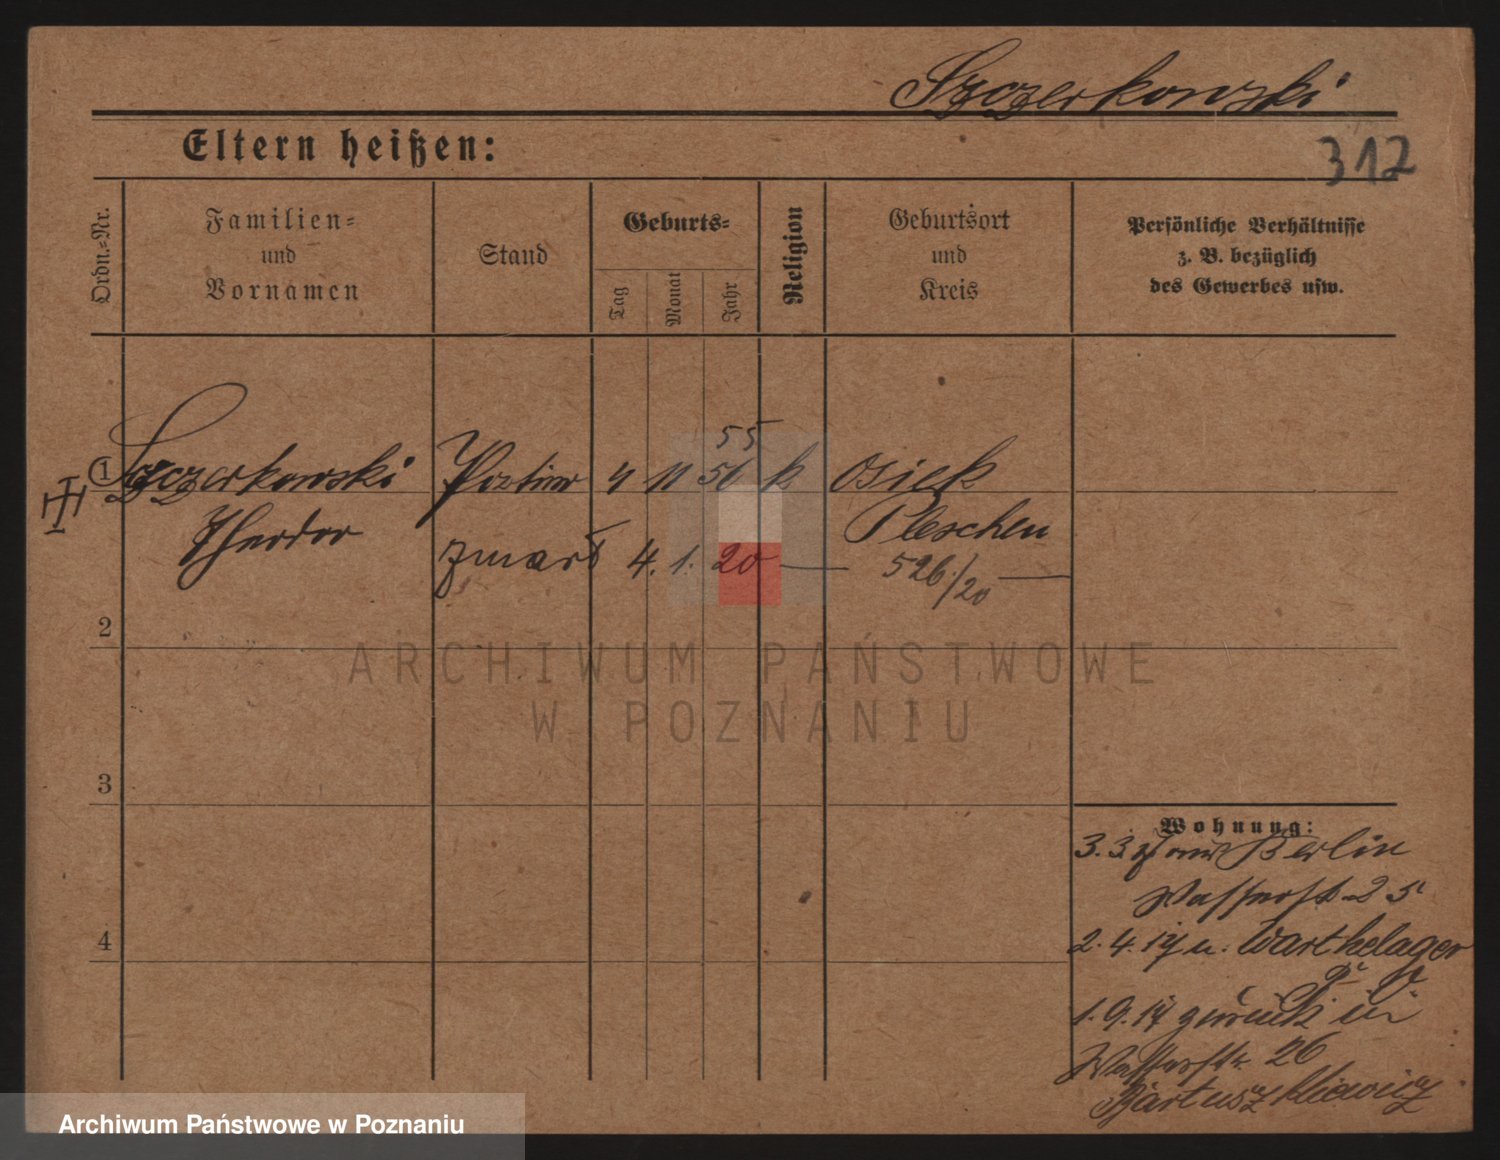 Szczerkowski
Eltern heißen:
312
Ordn.=Nr.
Familien=
und
Vornamen
Stand
Geburts=
Tag
Monat
Jahr
Religion
Geburtsort
und
Kreis
Persönliche Verhältnisse
z. B. bezüglich
des Gewerbes usw.
55
1 Szczerkowski 4 11 56 k Osiek
Theodor Pleschen
zmarł 4. 1. 20 — 526/20 —
2
3
4
Wohnung:
3.3. Berlin
Wasserst 25
2.4.17 n. Warthelager
1.9.17 zurück in
Wasserstr. 26
Bartuszkiewicz
ARCHIWUM PAŃSTWOWE
W POZNANIU
Archiwum Państwowe w Poznaniu